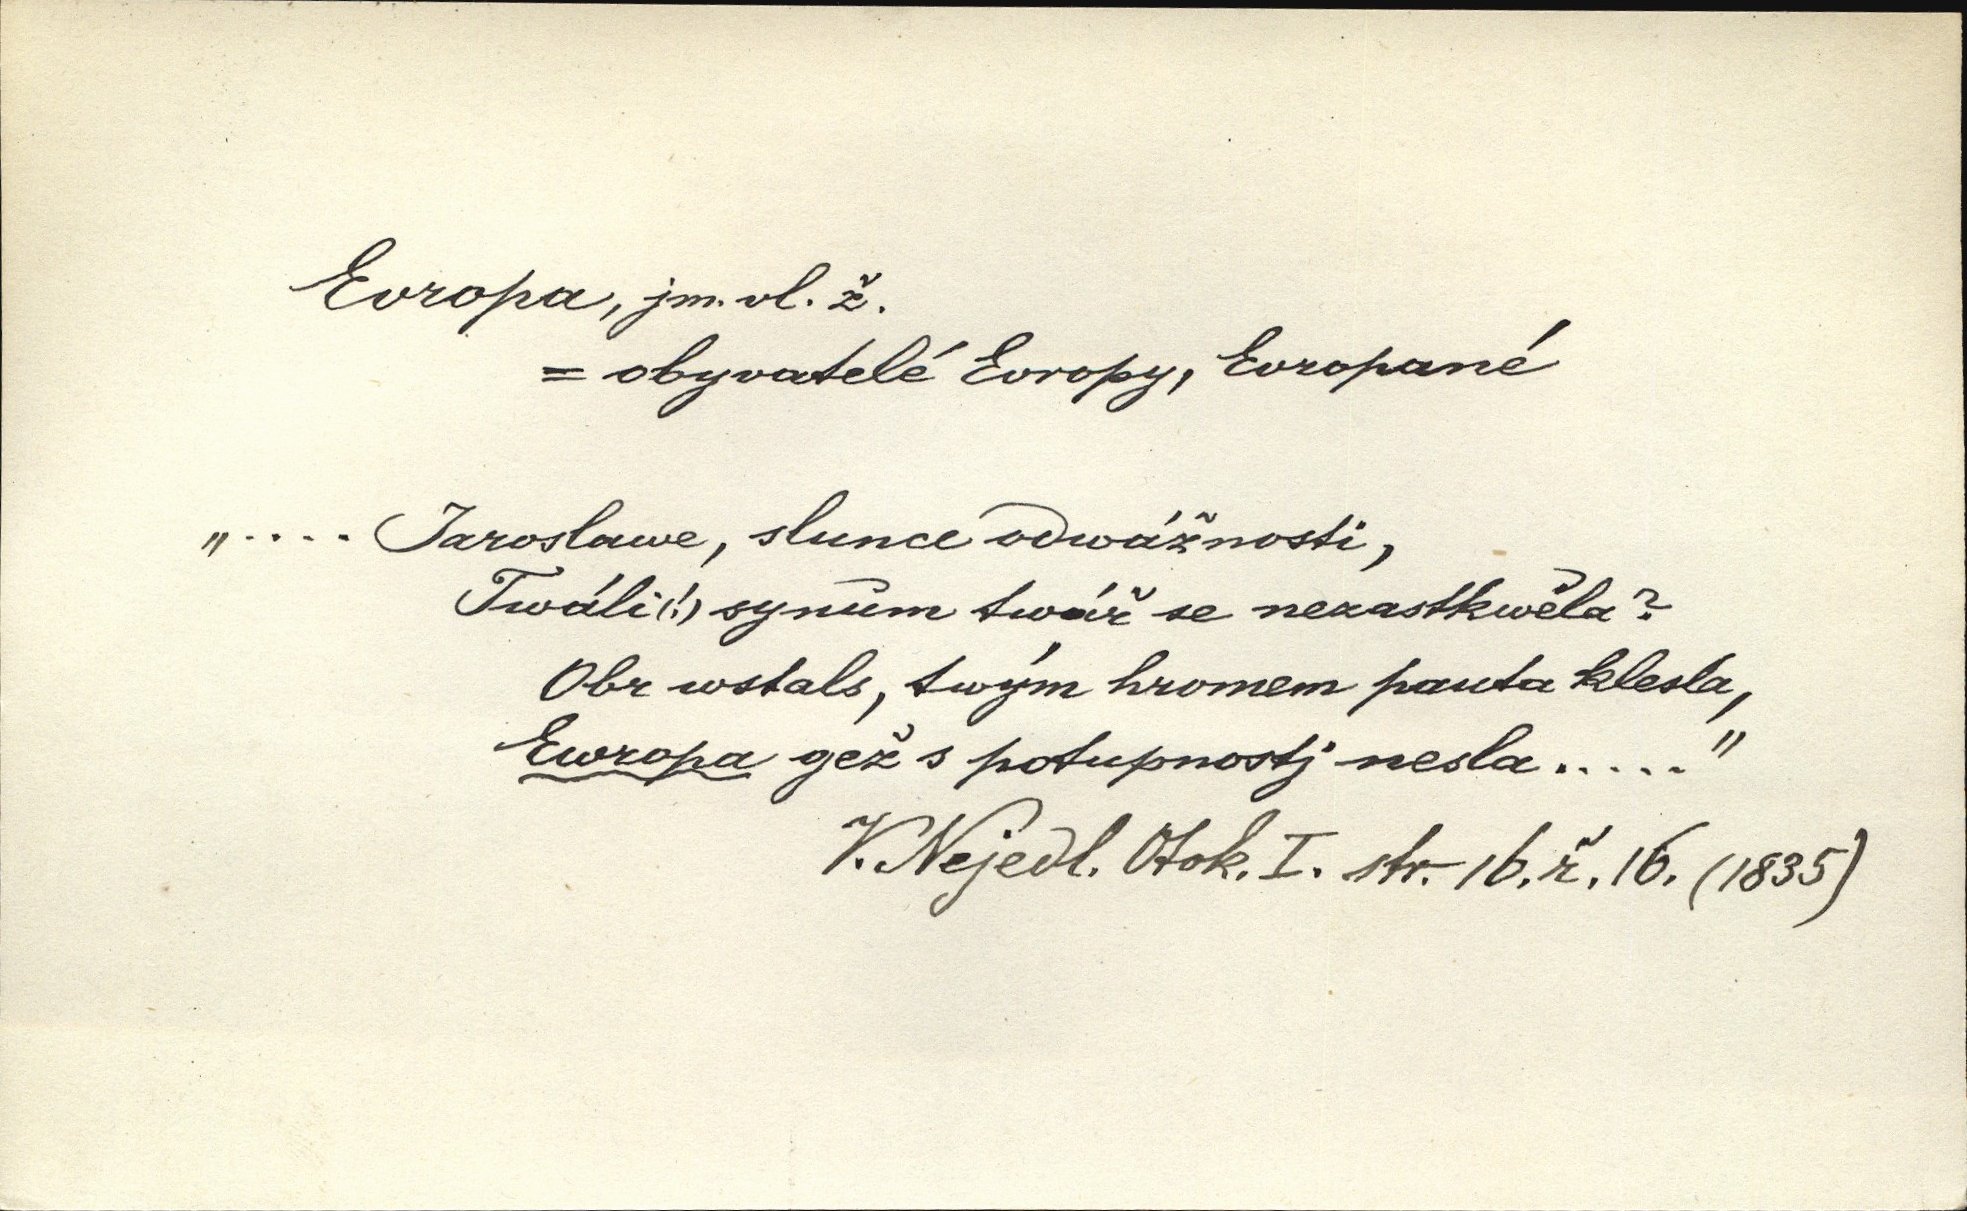 Evropa, jm. vl. ž.
= obyvatelé Evropy, Evropané
„.... Jaroslawe, slunce odwážnosti,
Twáli(!) synům twář se nezastkwěla?
Obr wstals, twým hromem pauta klesla,
Ewropa gež s potupnostj nesla....."
V. Nejedl. Otok. I. str. 16. ř. 16. (1835)